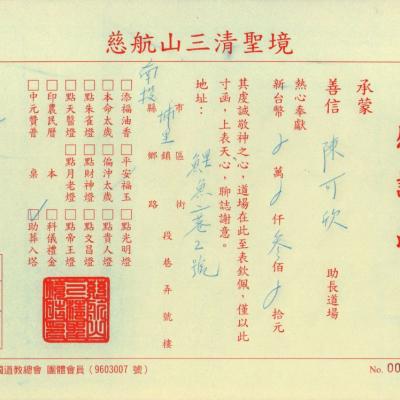 慈航山三清聖境
承蒙
善信 陳可欣 助長道場
熱心奉獻
新台幣 萬 仟 叁佰 拾元
其虔誠敬神之心，道場在此至表欽佩，僅以此
寸函，上表天心，聊誌謝意。
地址：
南投 縣市 埔里 鄉鎮區 路街 段 鯉魚二巷 弄 2號 樓
□添福油香 □平安福玉 □點光明燈
□本命太歲 □偏沖太歲 □點貴人燈
□點朱雀燈 □點財神燈 □點文昌燈
□點天醫燈 □點月老燈 □點帝王燈
□印農民曆 本 □科儀禮金
□中元贊普 桌 ☑助葬入塔
道教總會 團體會員（9603007 號）
No. 00